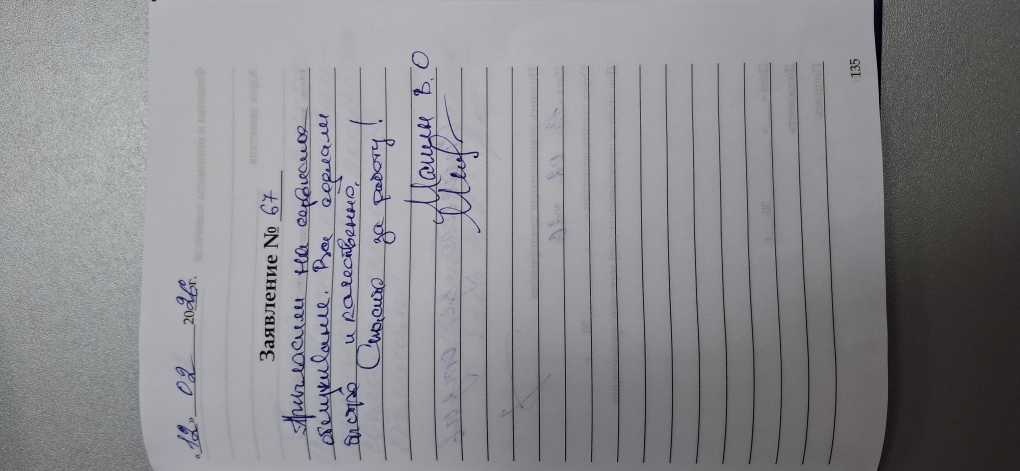 "12" 02 2026г.
Заявление № 67
Пригласили на сервисное
обслуживание. Все сделали
быстро и качественно.
Спасибо за работу!
В.О
135